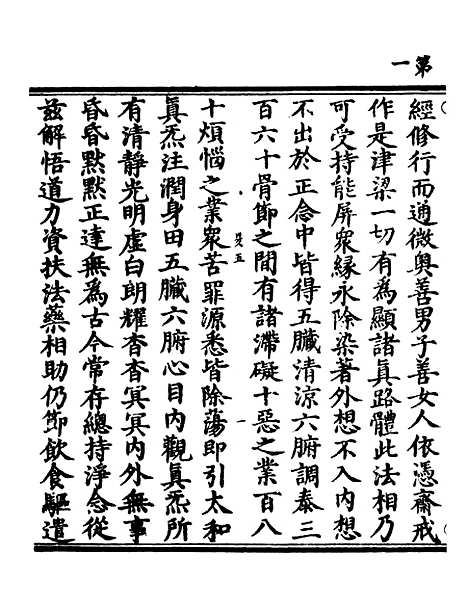 第一
經修行而通微奥善男子善女人依憑齋戒
作是津梁一切有為顯諸真路體此法相乃
可受持能屏衆緣永除染著外想不入内想
不出於正念中皆得五臟清涼六腑調泰三
百六十骨節之間有諸滯礙十惡之業百八
十煩惱之業衆苦罪源悉皆除蕩即引太和
真炁注潤身田五臟六腑心目内觀真炁所
有清靜光明虛白朗耀杳杳冥冥内外無事
昏昏默默正達無為古今常存總持淨念從
兹解悟道力資扶法藥相助仍節飲食驅遣